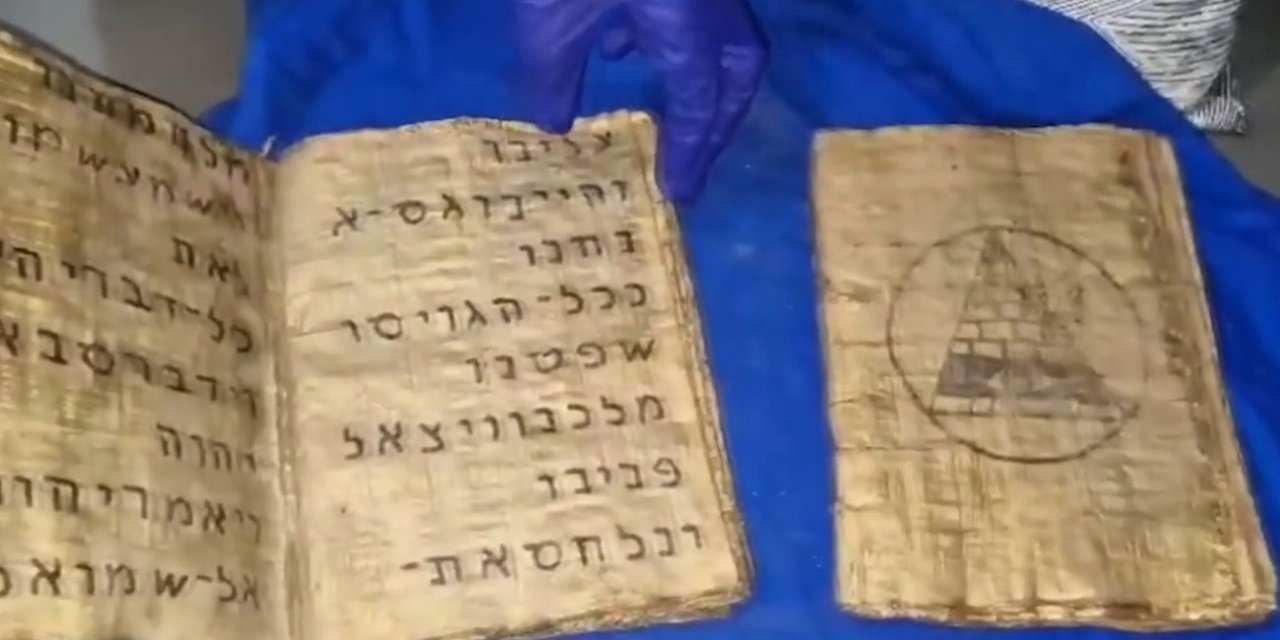 עליבו
והייבוגס-א
נחנו
ככל-הגויסו
שפטנו
מלכנוויצאל
פניבו
ונלחסאת-
וישמעשמו
ואת
כל-דבריה
וידברסבא
יהוה
ויאמריהו
אל-שמוא